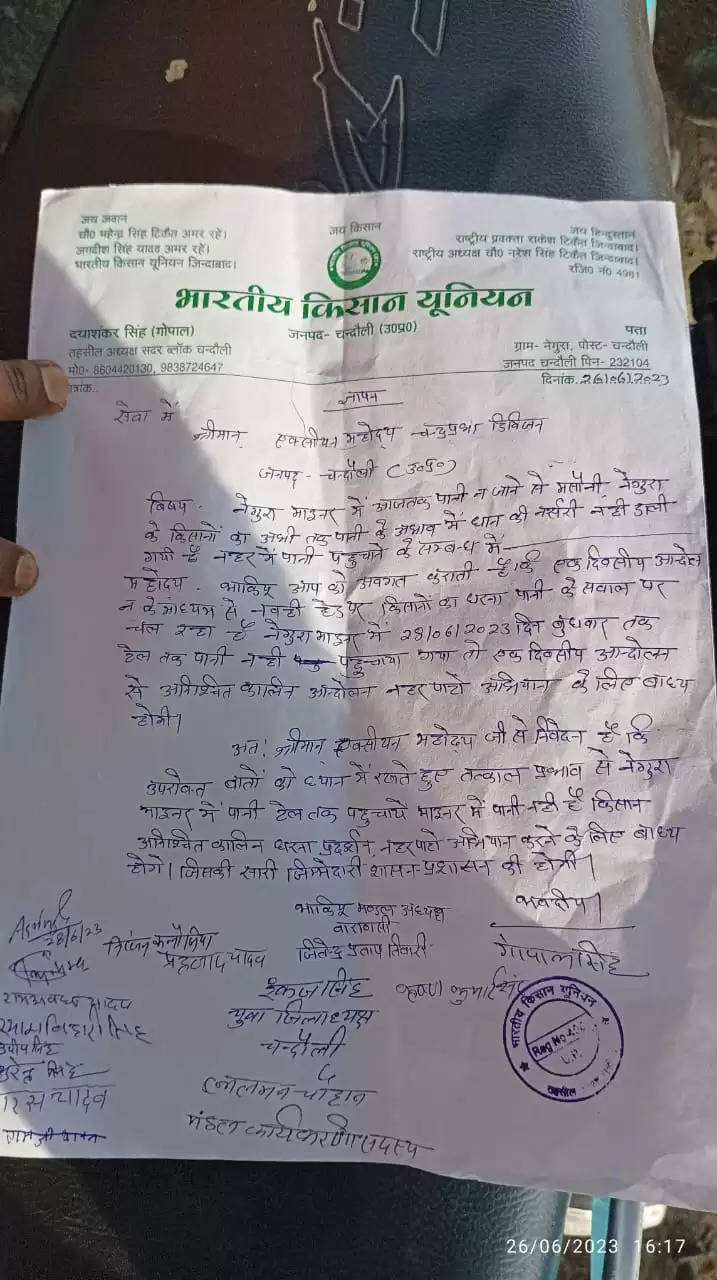 जय जवान
चौ० महेन्द्र सिंह टिकैत अमर रहे।
जगदीश सिंह यादव अमर रहे।
भारतीय किसान यूनियन जिन्दाबाद।
जय किसान
जय हिन्दुस्तान
राष्ट्रीय प्रवक्ता राकेश टिकैत जिन्दाबाद।
राष्ट्रीय अध्यक्ष चौ० नरेश सिंह टिकैत जिन्दाबाद।
रजि० नं०
भारतीय किसान यूनियन
जनपद- चन्दौली (उ०प्र०)
दयाशंकर सिंह (गोपाल)
तहसील अध्यक्ष सदर ब्लॉक चन्दौली
मो०- 8604420130, 9838724647
पत्रांक..
पता
ग्राम- नेगुरा, पोस्ट- चन्दौली
जनपद चन्दौली पिन- 232104
दिनांक. 26/06/2023
ज्ञापन
सेवा में
श्रीमान् एक्सीयन महोदय चन्द्रप्रभा डिविजन
जनपद - चन्दौली (उ०प्र०)
विषय - नेगुरा माइनर में आजतक पानी न जाने से मसौनी नेगुरा
के किसानों का अभी तक पानी के अभाव में धान की नर्सरी नही डाली
गयी है नहर में पानी पहुचाने के सम्बन्ध में
महोदय - भाकियू आप को अवगत कराती है कि एक दिवसीय आन्दोल
न के माध्यम से नवही हेड पर किसानों का धरना पानी के सवाल पर
चल रहा है नेगुरा माइनर में 28/06/2023 दिन बुधवार तक
टेल तक पानी नही पहुचाया गया तो एक दिवसीय आन्दोलन
से अनिश्चित कालिन आन्दोलन नहर पाटो अभियान के लिए बाध्य
होगी।
अतः श्रीमान एक्सीयन महोदय जी से निवेदन है कि
उपरोक्त बातों को ध्यान में रखते हुए तत्काल प्रभाव से नेगुरा
माइनर में पानी टेल तक पहुचायें माइनर में पानी नही है किसान
अनिश्चित कालिन धरना प्रदर्शन, नहर पाटो अभियान करने के लिए बाध्य
होगे। जिसकी सारी जिम्मेदारी शासन-प्रशासन की होगी।
भवदीय।
भाकियू मण्डल अध्यक्ष
वाराणसी
जितेन्द्र प्रताप तिवारी
गोपाल सिंह
28/6/23
प्रहलाद यादव
कृष्ण कुमार सिंह
युवा जिलाध्यक्ष
चन्दौली
चौहान
मंडल कार्यकारिणी सदस्य
रामअवध यादव
श्याम बिहारी सिंह
यादव
भारतीय किसान यूनियन
Reg No.
U.P.
तहसील
26/06/2023 16:17